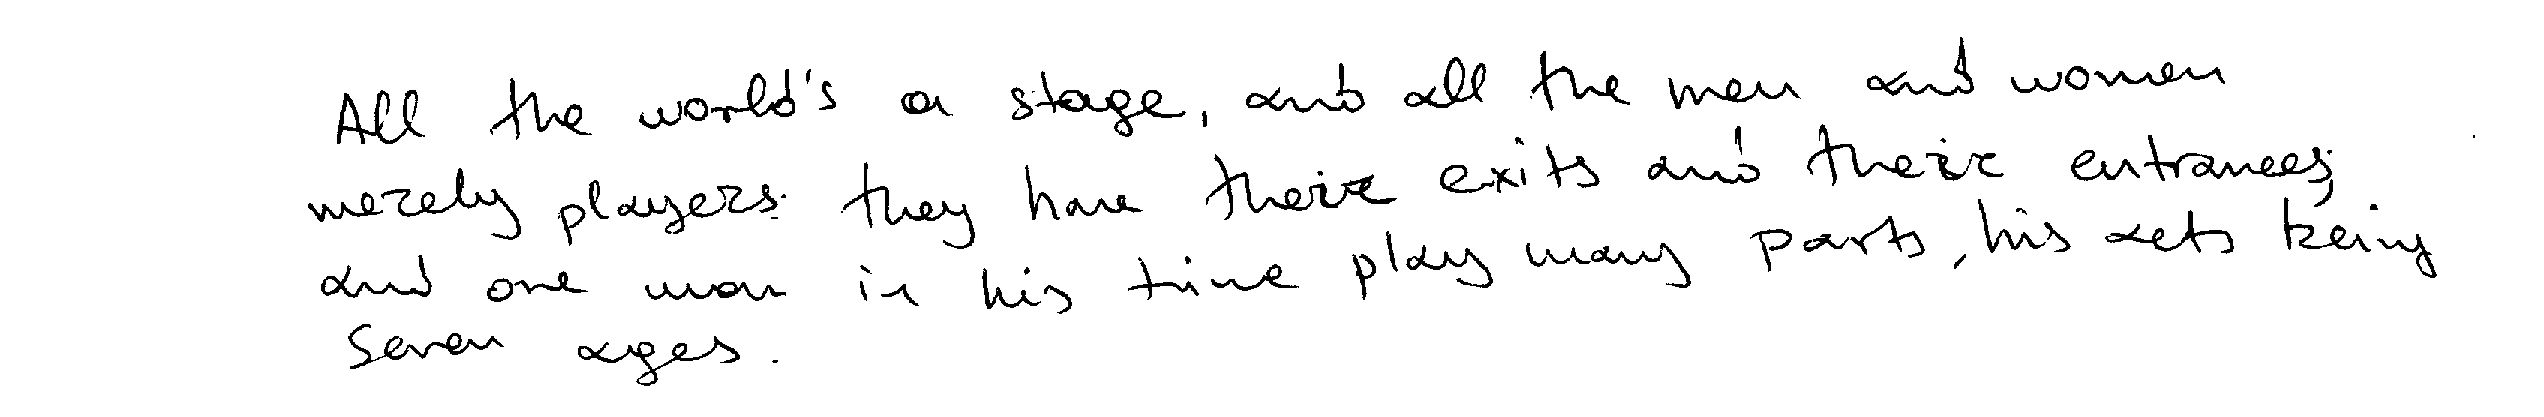 All the world's a stage, and all the men and women
merely players: they have their exits and their entrances;
and one man in his time play many parts, his acts being
seven ages.